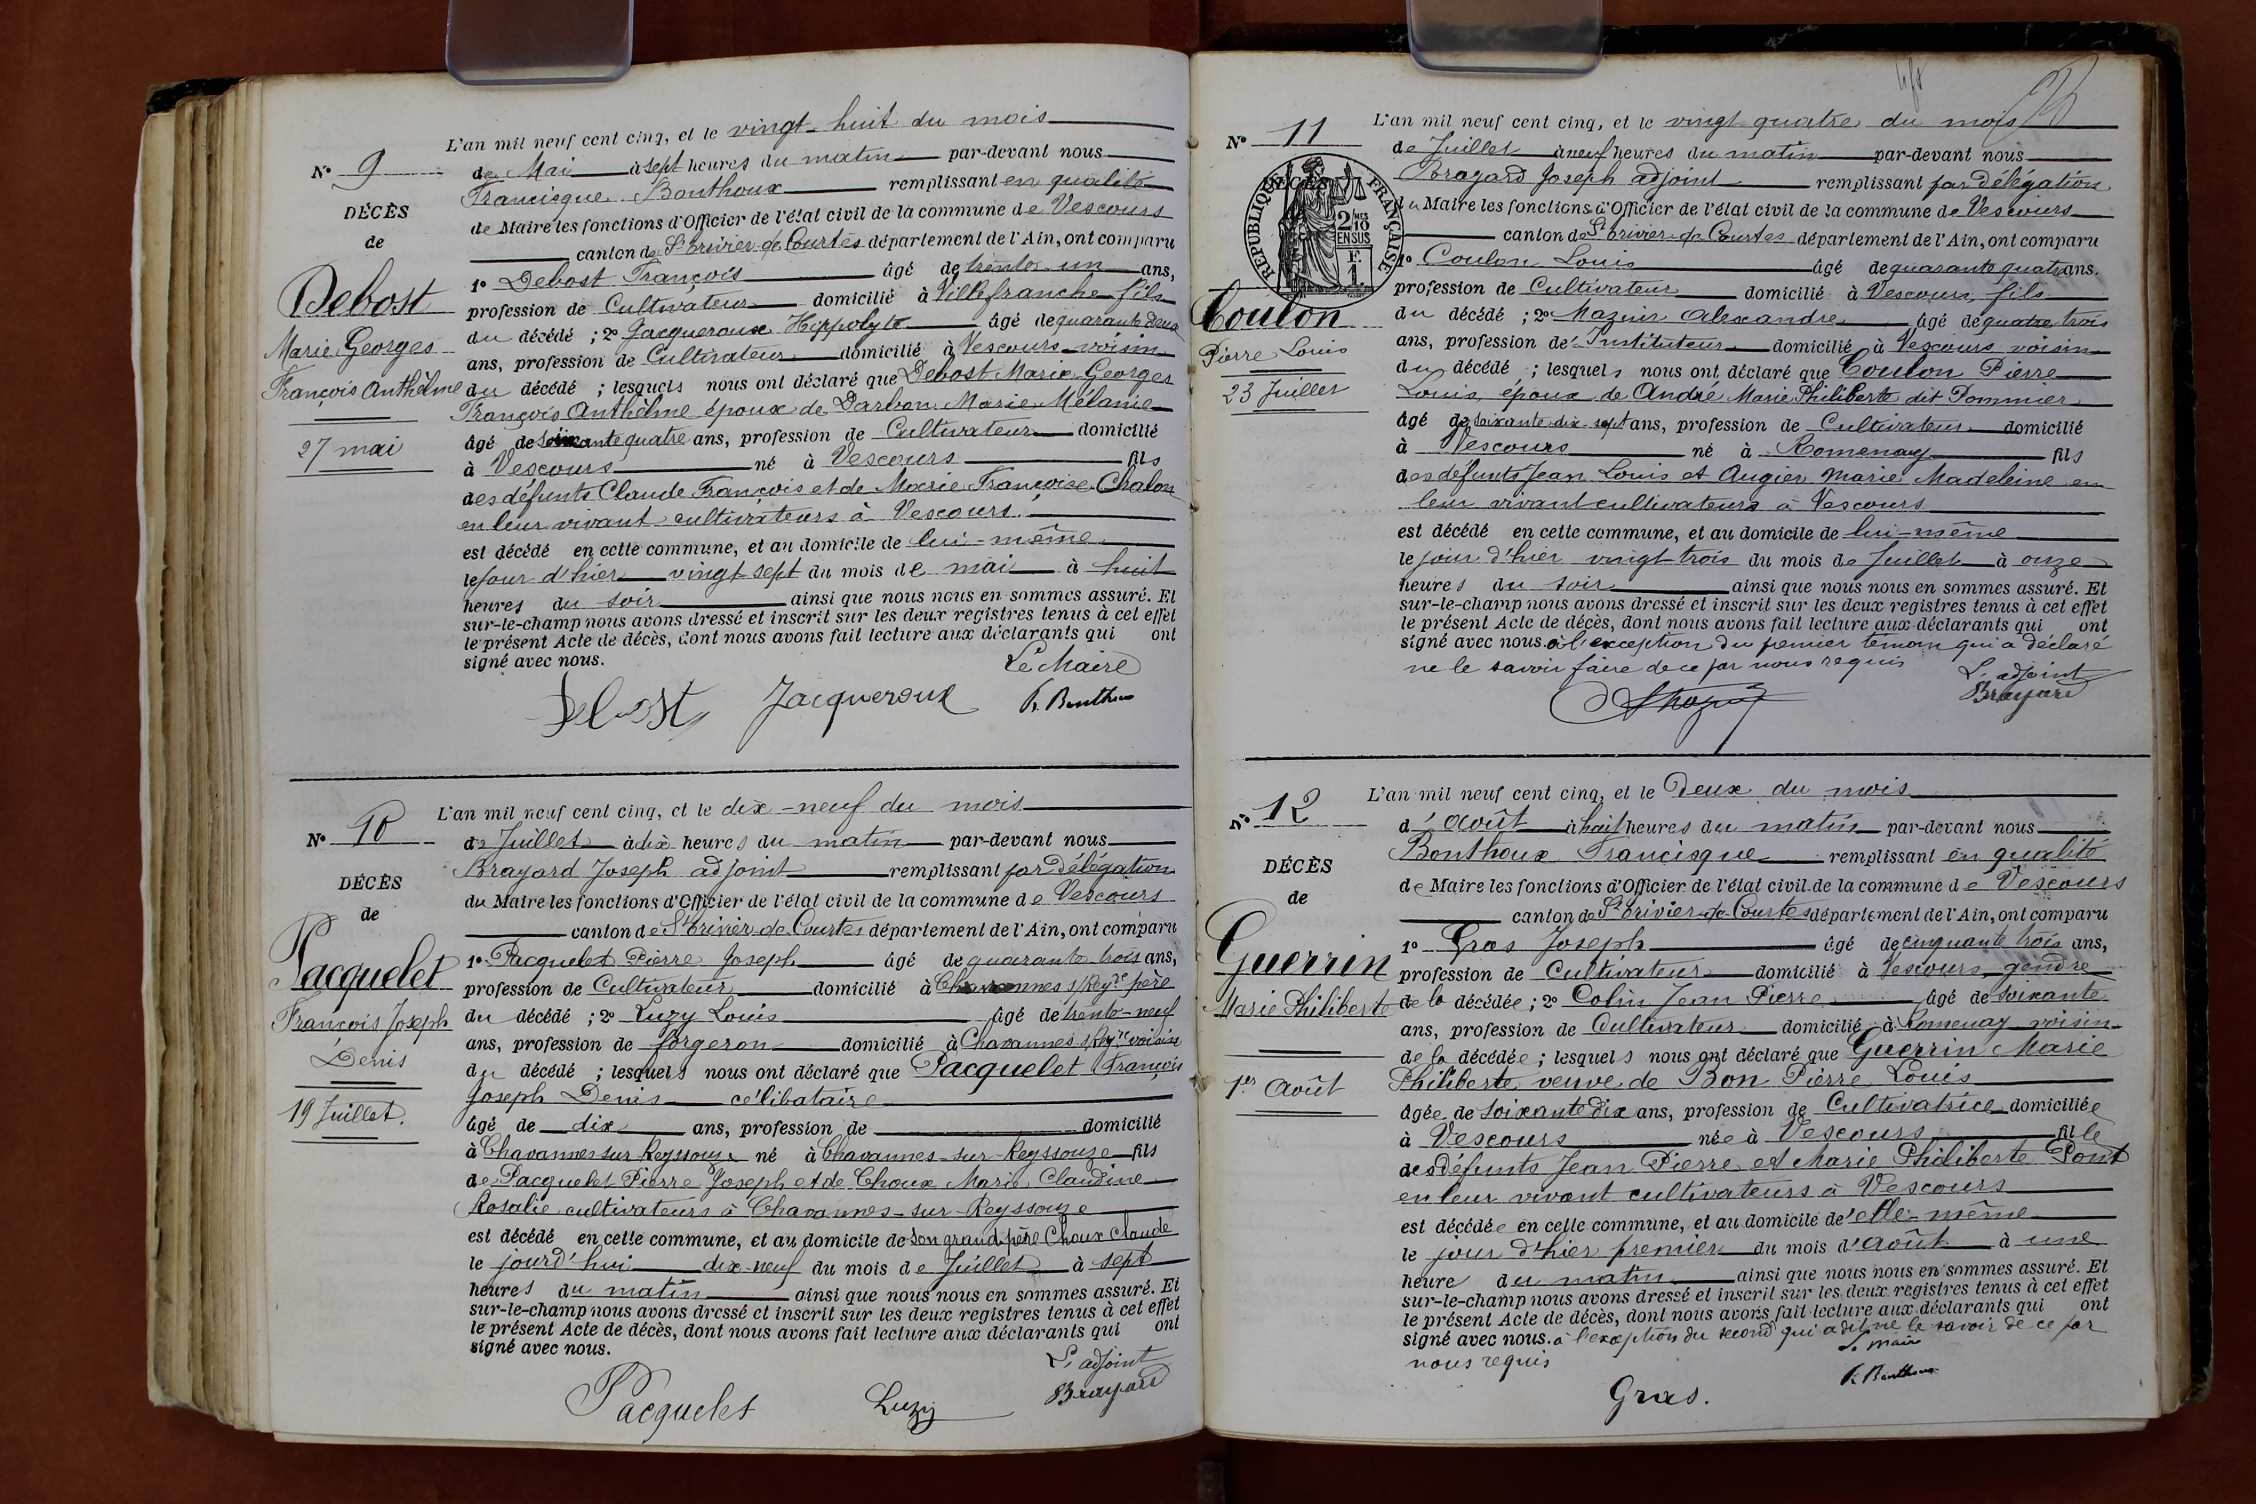 L'an mil neuf cent cinq, et le vingt-huit du mois
N° 9
de Mai à sept heures du matin par-devant nous
Francisque Bonthoux remplissant en qualité
DÉCÈS
de Maire les fonctions d'Officier de l'état civil de la commune de Vescours
de
canton de St Trivier-de-Courtes département de l'Ain, ont comparu
1° Debost François âgé de trente-un ans,
Debost
profession de Cultivateur domicilié à Villefranche fils
du décédé ; 2° Jacqueroux Hippolyte âgé de quarante deux
Marie Georges
ans, profession de Cultivateur domicilié à Vescours voisin
François Anthelme
du décédé ; lesquels nous ont déclaré que Debost Marie Georges
François Anthelme époux de Darbon Marie Mélanie
27 mai
âgé de soixante quatre ans, profession de Cultivateur domicilié
à Vescours né à Vescours fils
des défunts Claude François et de Marie Françoise Chalon
en leur vivant cultivateurs à Vescours.
est décédé en cette commune, et au domicile de lui-même
le jour d'hier vingt sept du mois de mai à huit
heures du soir ainsi que nous nous en sommes assuré. Et
sur-le-champ nous avons dressé et inscrit sur les deux registres tenus à cet effet
le présent Acte de décès, dont nous avons fait lecture aux déclarants qui ont
signé avec nous.
Le Maire
Debost Jacqueroux F. Bonthoux
L'an mil neuf cent cinq, et le dix-neuf du mois
N° 10
de Juillet à dix heures du matin par-devant nous
Brayard Joseph adjoint remplissant par Délégation
DÉCÈS
du Maire les fonctions d'Officier de l'état civil de la commune de Vescours
de
canton de St Trivier-de-Courtes département de l'Ain, ont comparu
Pacquelet
1° Pacquelet Pierre Joseph âgé de quarante trois ans,
profession de Cultivateur domicilié à Chavannes s/Reyze père
François Joseph
du décédé ; 2° Luzy Louis âgé de trente-neuf
Denis
ans, profession de forgeron domicilié à Chavannes s/Reyze voisin
du décédé ; lesquels nous ont déclaré que Pacquelet François
19 Juillet.
Joseph Denis célibataire
âgé de dix ans, profession de domicilié
à Chavannes sur Reyssouze né à Chavannes-sur-Reyssouze fils
de Pacquelet Pierre Joseph et de Choux Marie Claudine
Rosalie cultivateurs à Chavannes-sur-Reyssouze
est décédé en cette commune, et au domicile de son grand-père Choux Claude
le jourd'hui dix-neuf du mois de Juillet à sept
heures du matin ainsi que nous nous en sommes assuré. Et
sur-le-champ nous avons dressé et inscrit sur les deux registres tenus à cet effet
le présent Acte de décès, dont nous avons fait lecture aux déclarants qui ont
signé avec nous.
L'adjoint
Pacquelet Luzy Brayard
L'an mil neuf cent cinq, et le vingt-quatre du mois
N° 11
de Juillet à neuf heures du matin par-devant nous
Brayard Joseph adjoint remplissant par Délégation
DÉCÈS
RÉPUBLIQUE FRANÇAISE
2/10 EN SUS
F. 1
du Maire les fonctions d'Officier de l'état civil de la commune de Vescours
canton de St Trivier-de-Courtes département de l'Ain, ont comparu
1° Coulon Louis âgé de quarante quatre ans.
profession de Cultivateur domicilié à Vescours fils
Coulon
du décédé ; 2° Mazuir Alexandre âgé de quatre trois
Pierre Louis
ans, profession de Instituteur domicilié à Vescours voisin
du décédé ; lesquels nous ont déclaré que Coulon Pierre
23 Juillet
Louis, époux de André Marie Philiberte dit Pommier
âgé de soixante dix-sept ans, profession de Cultivateur domicilié
à Vescours né à Romenay fils
des défunts Jean Louis et Augier Marie Madeleine en
leur vivant cultivateurs à Vescours
est décédé en cette commune, et au domicile de lui-même
le jour d'hier vingt trois du mois de Juillet à onze
heures du soir ainsi que nous nous en sommes assuré. Et
sur-le-champ nous avons dressé et inscrit sur les deux registres tenus à cet effet
le présent Acte de décès, dont nous avons fait lecture aux déclarants qui ont
signé avec nous. à l'exception du premier témoin qui a déclaré
ne le savoir faire de ce par nous requis
L'adjoint
Brayard
L'an mil neuf cent cinq, et le Deux du mois
N° 12
d'Août à huit heures du matin par-devant nous
Bonthoux Francisque remplissant en qualité
DÉCÈS
de Maire les fonctions d'Officier de l'état civil de la commune de Vescours
de
canton de St Trivier-de-Courtes département de l'Ain, ont comparu
Guerrin
1° Gras Joseph âgé de cinquante trois ans,
profession de Cultivateur domicilié à Vescours gendre
Marie Philiberte
de la décédée ; 2° Colin Jean Pierre âgé de soixante
ans, profession de Cultivateur domicilié à Romenay voisin
de la décédée ; lesquels nous ont déclaré que Guerrin Marie
1er Août
Philiberte veuve de Bon Pierre Louis
âgée de soixante dix ans, profession de Cultivatrice domiciliée
à Vescours née à Vescours fille
des défunts Jean Pierre et Marie Philiberte Pont
en leur vivant cultivateurs à Vescours
est décédée en cette commune, et au domicile d'elle-même
le jour d'hier premier du mois d'août à une
heure du matin ainsi que nous nous en sommes assuré. Et
sur-le-champ nous avons dressé et inscrit sur les deux registres tenus à cet effet
le présent Acte de décès, dont nous avons fait lecture aux déclarants qui ont
signé avec nous. à l'exception du second qui a dit ne le savoir de ce par
nous requis
Le Maire
Gras. F. Bonthoux